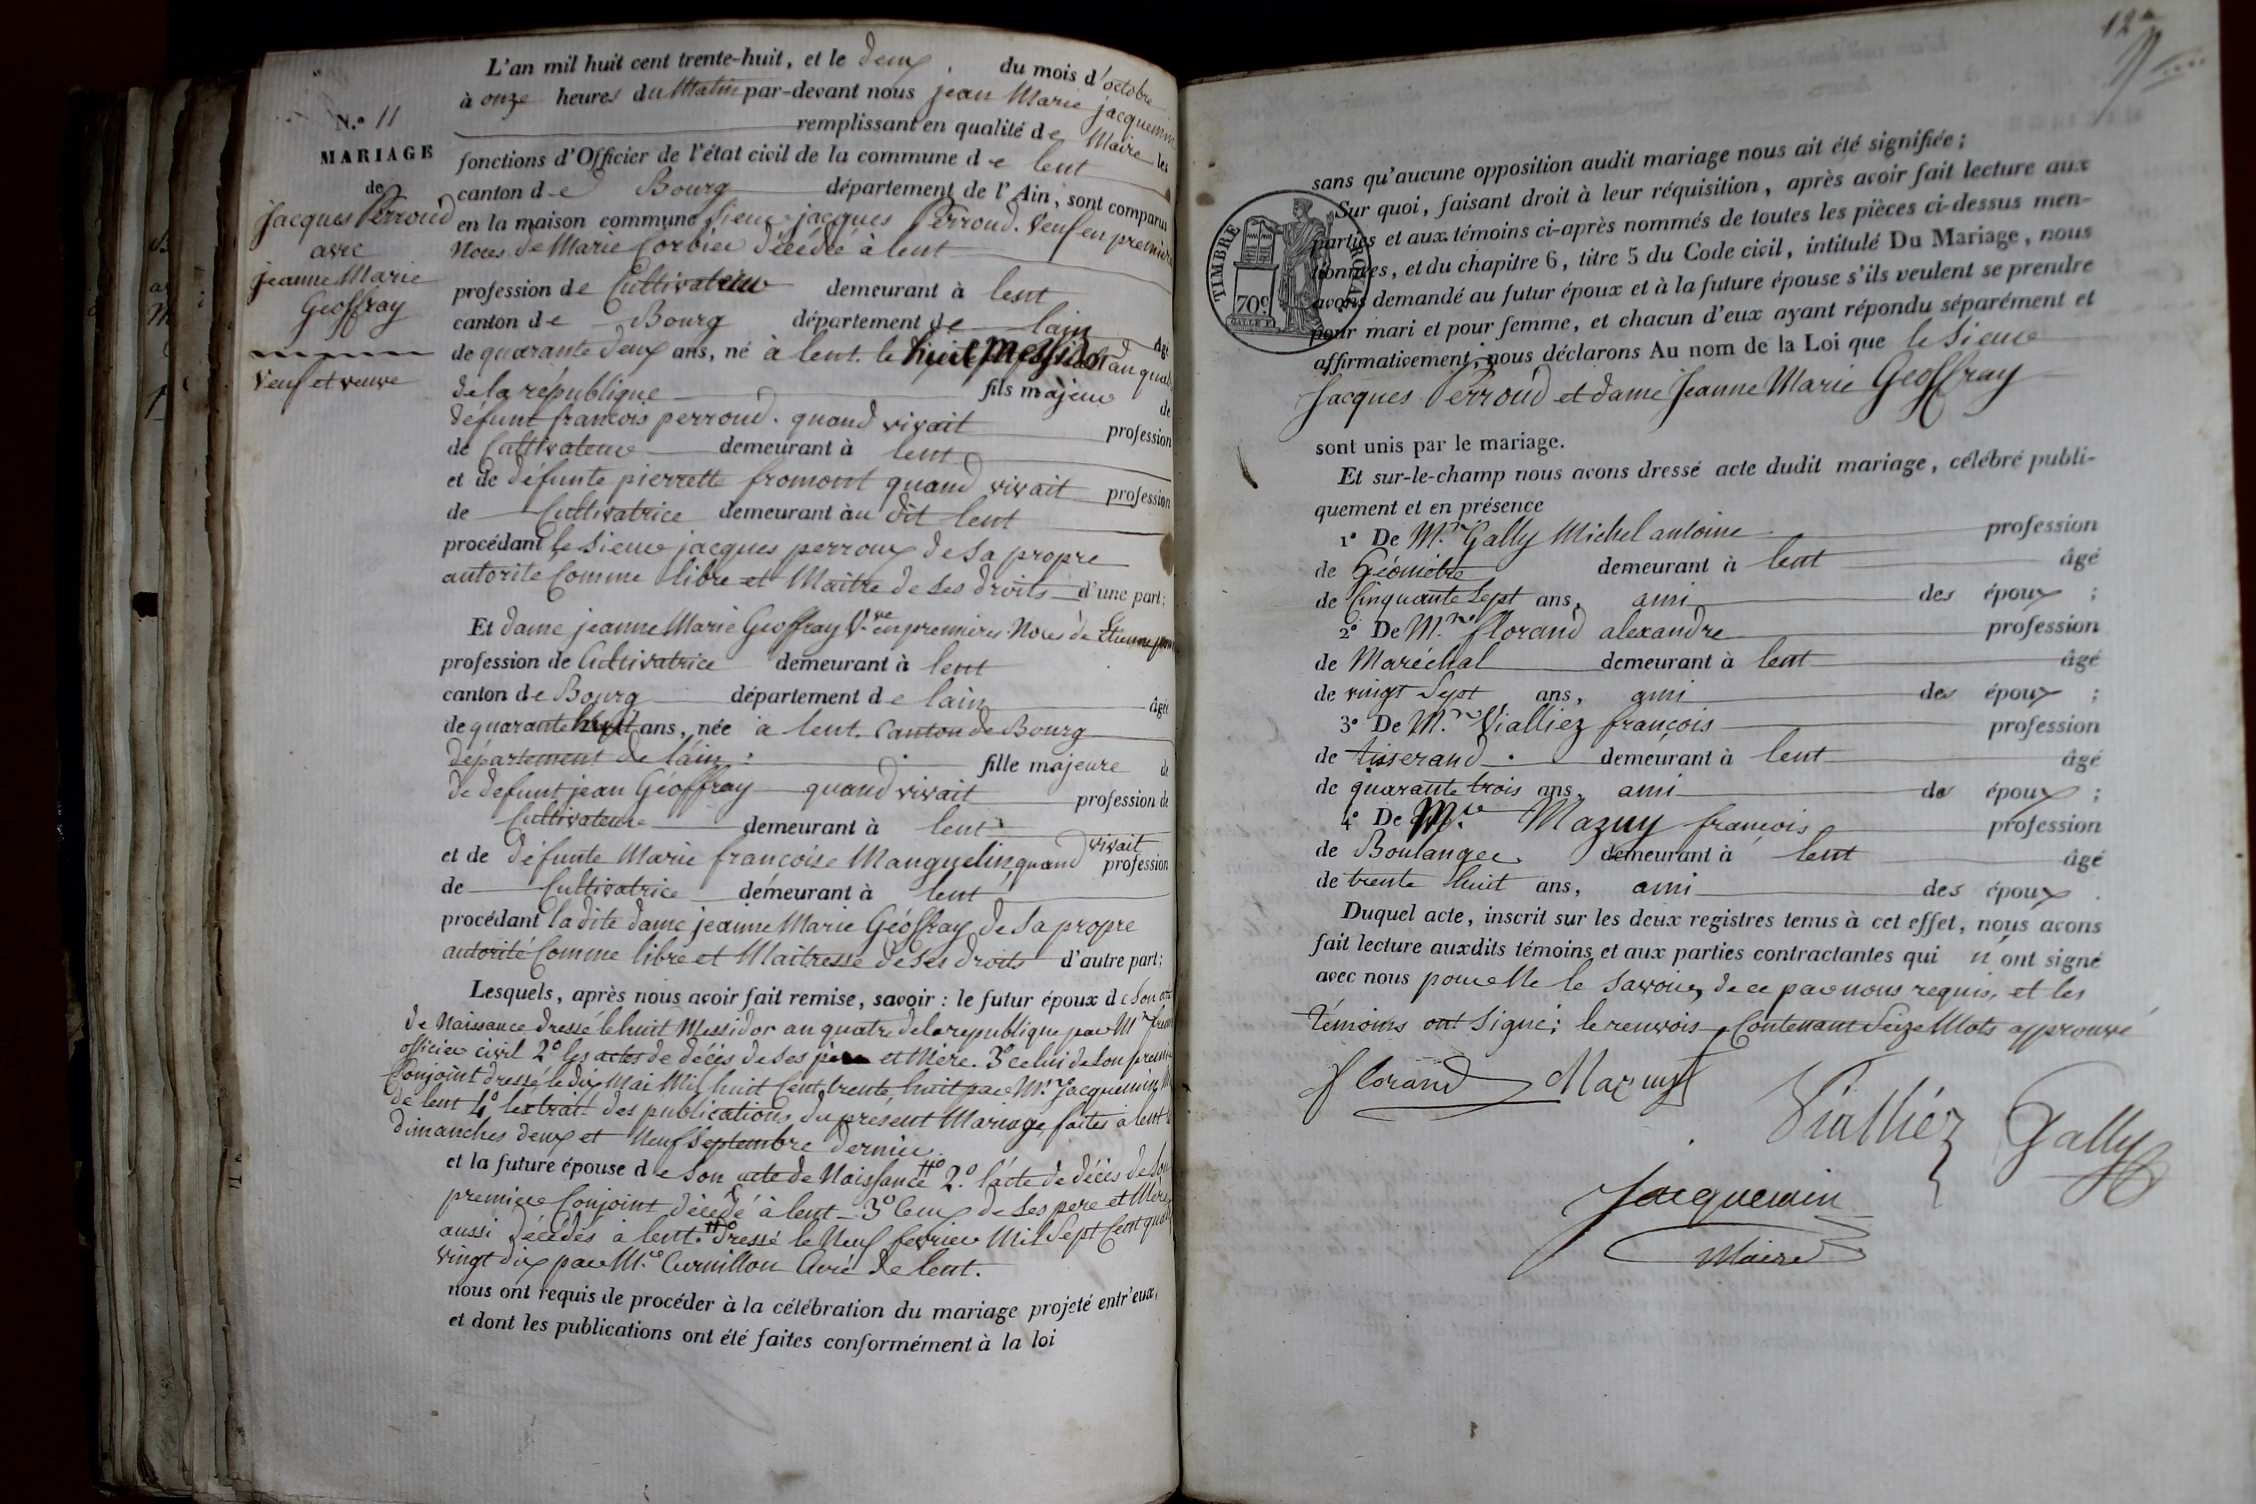 L'an mil huit cent trente-huit, et le deux du mois d'octobre
à onze heures du Matin par-devant nous jean Marie jacquemin
remplissant en qualité de Maire les
fonctions d'Officier de l'état civil de la commune de lent
canton de Bourg département de l'Ain, sont comparus
en la maison commune Sieur jacques Perroud. Veuf en premiere
Noces de Marie Corbier décédée à lent
profession de Cultivateur demeurant à lent
canton de Bourg département de lain âgé
de quarante deux ans, né à lent. le huit Messidor an quatre
de la république fils majeur de
défunt francois perroud. quand vivait profession
de Cultivateur demeurant à lent
et de défunte pierrette fromont quand vivait profession
de Cultivatrice demeurant àu dit lent
procédant le Sieur jacques perroux de Sa propre
autorité Comme libre et Maitre de Ses droits d'une part;
Et dame jeanne Marie Geoffray V.ve en premieres Noces de Etienne
profession de Cultivatrice demeurant à lent
canton de Bourg département de lain âgée
de quarante huit ans, née à lent. Canton de Bourg
département de láin: fille majeure de
de defunt jean Géoffray quand vivait profession de
Cultivateur demeurant à lent
et de défunte Marie françoise Manguelin, quand vivait profession
de Cultivatrice demeurant à lent
procédant la dite dame jeanne Marie Géoffray de Sa propre
autorité Comme libre et Maitresse de Ses droits d'autre part;
Lesquels, après nous avoir fait remise, savoir: le futur époux de Son acte
de Naissance dressé le huit Messidor an quatre de la republique par Mr
officier civil 2.o les actes de décès de Ses père et Mère. 3.o celui de Son premier
Conjoint dressé le dix Mai Mil huit Cent trente huit par Mr. Jacquemin
de lent 4.o lextrait des publications du present Mariage faites a lent
dimanches deux et Neuf Septembre dernier.
et la future épouse de Son acte de Naissance # 2.o l'acte de décès de Son
premier Conjoint décédé à lent 3.o Ceux de Ses pere et Mère
aussi décédés à lent. # dressé le Neuf fevrier Mil Sept Cent quatre
vingt dix par Mr. Curnillon Curé de lent.
nous ont requis de procéder à la célébration du mariage projeté entr'eux,
et dont les publications ont été faites conformément à la loi
N.o 11
MARIAGE
de
Jacques Perroud
avec
jeanne Marie
Geoffray
Veuf et veuve
12
sans qu'aucune opposition audit mariage nous ait été signifiée;
Sur quoi, faisant droit à leur réquisition, après avoir fait lecture aux
parties et aux témoins ci-après nommés de toutes les pièces ci-dessus men-
tionnées, et du chapitre 6, titre 5 du Code civil, intitulé Du Mariage, nous
avons demandé au futur époux et à la future épouse s'ils veulent se prendre
pour mari et pour femme, et chacun d'eux ayant répondu séparément et
affirmativement, nous déclarons Au nom de la Loi que le Sieur
Jacques Perroud et dame Jeanne Marie Geoffray
sont unis par le mariage.
Et sur-le-champ nous avons dressé acte dudit mariage, célébré publi-
quement et en présence
1o De Mr. Gally Michel antoine profession
de Géometre demeurant à lent âgé
de Cinquante Sept ans, ami des époux;
2o De Mr. florand alexandre profession
de Maréchal demeurant à lent âgé
de vingt Sept ans, ami des époux;
3o De Mr. Vialliez françois profession
de tisserand demeurant à lent âgé
de quarante trois ans, ami des époux;
4o De Mr. Mazuy francois profession
de Boulanger demeurant à lent âgé
de trente huit ans, ami des époux.
Duquel acte, inscrit sur les deux registres tenus à cet effet, nous avons
fait lecture auxdits témoins et aux parties contractantes qui n'ont signé
avec nous pour Ne le Savoir, de ce par nous requis, et les
témoins ont Signé; le renvois Contenant Seize Mots approuvé
florand Mazuy
Vialliéz Gally
Jacquemin
Maire
TIMBRE ROYAL
70c